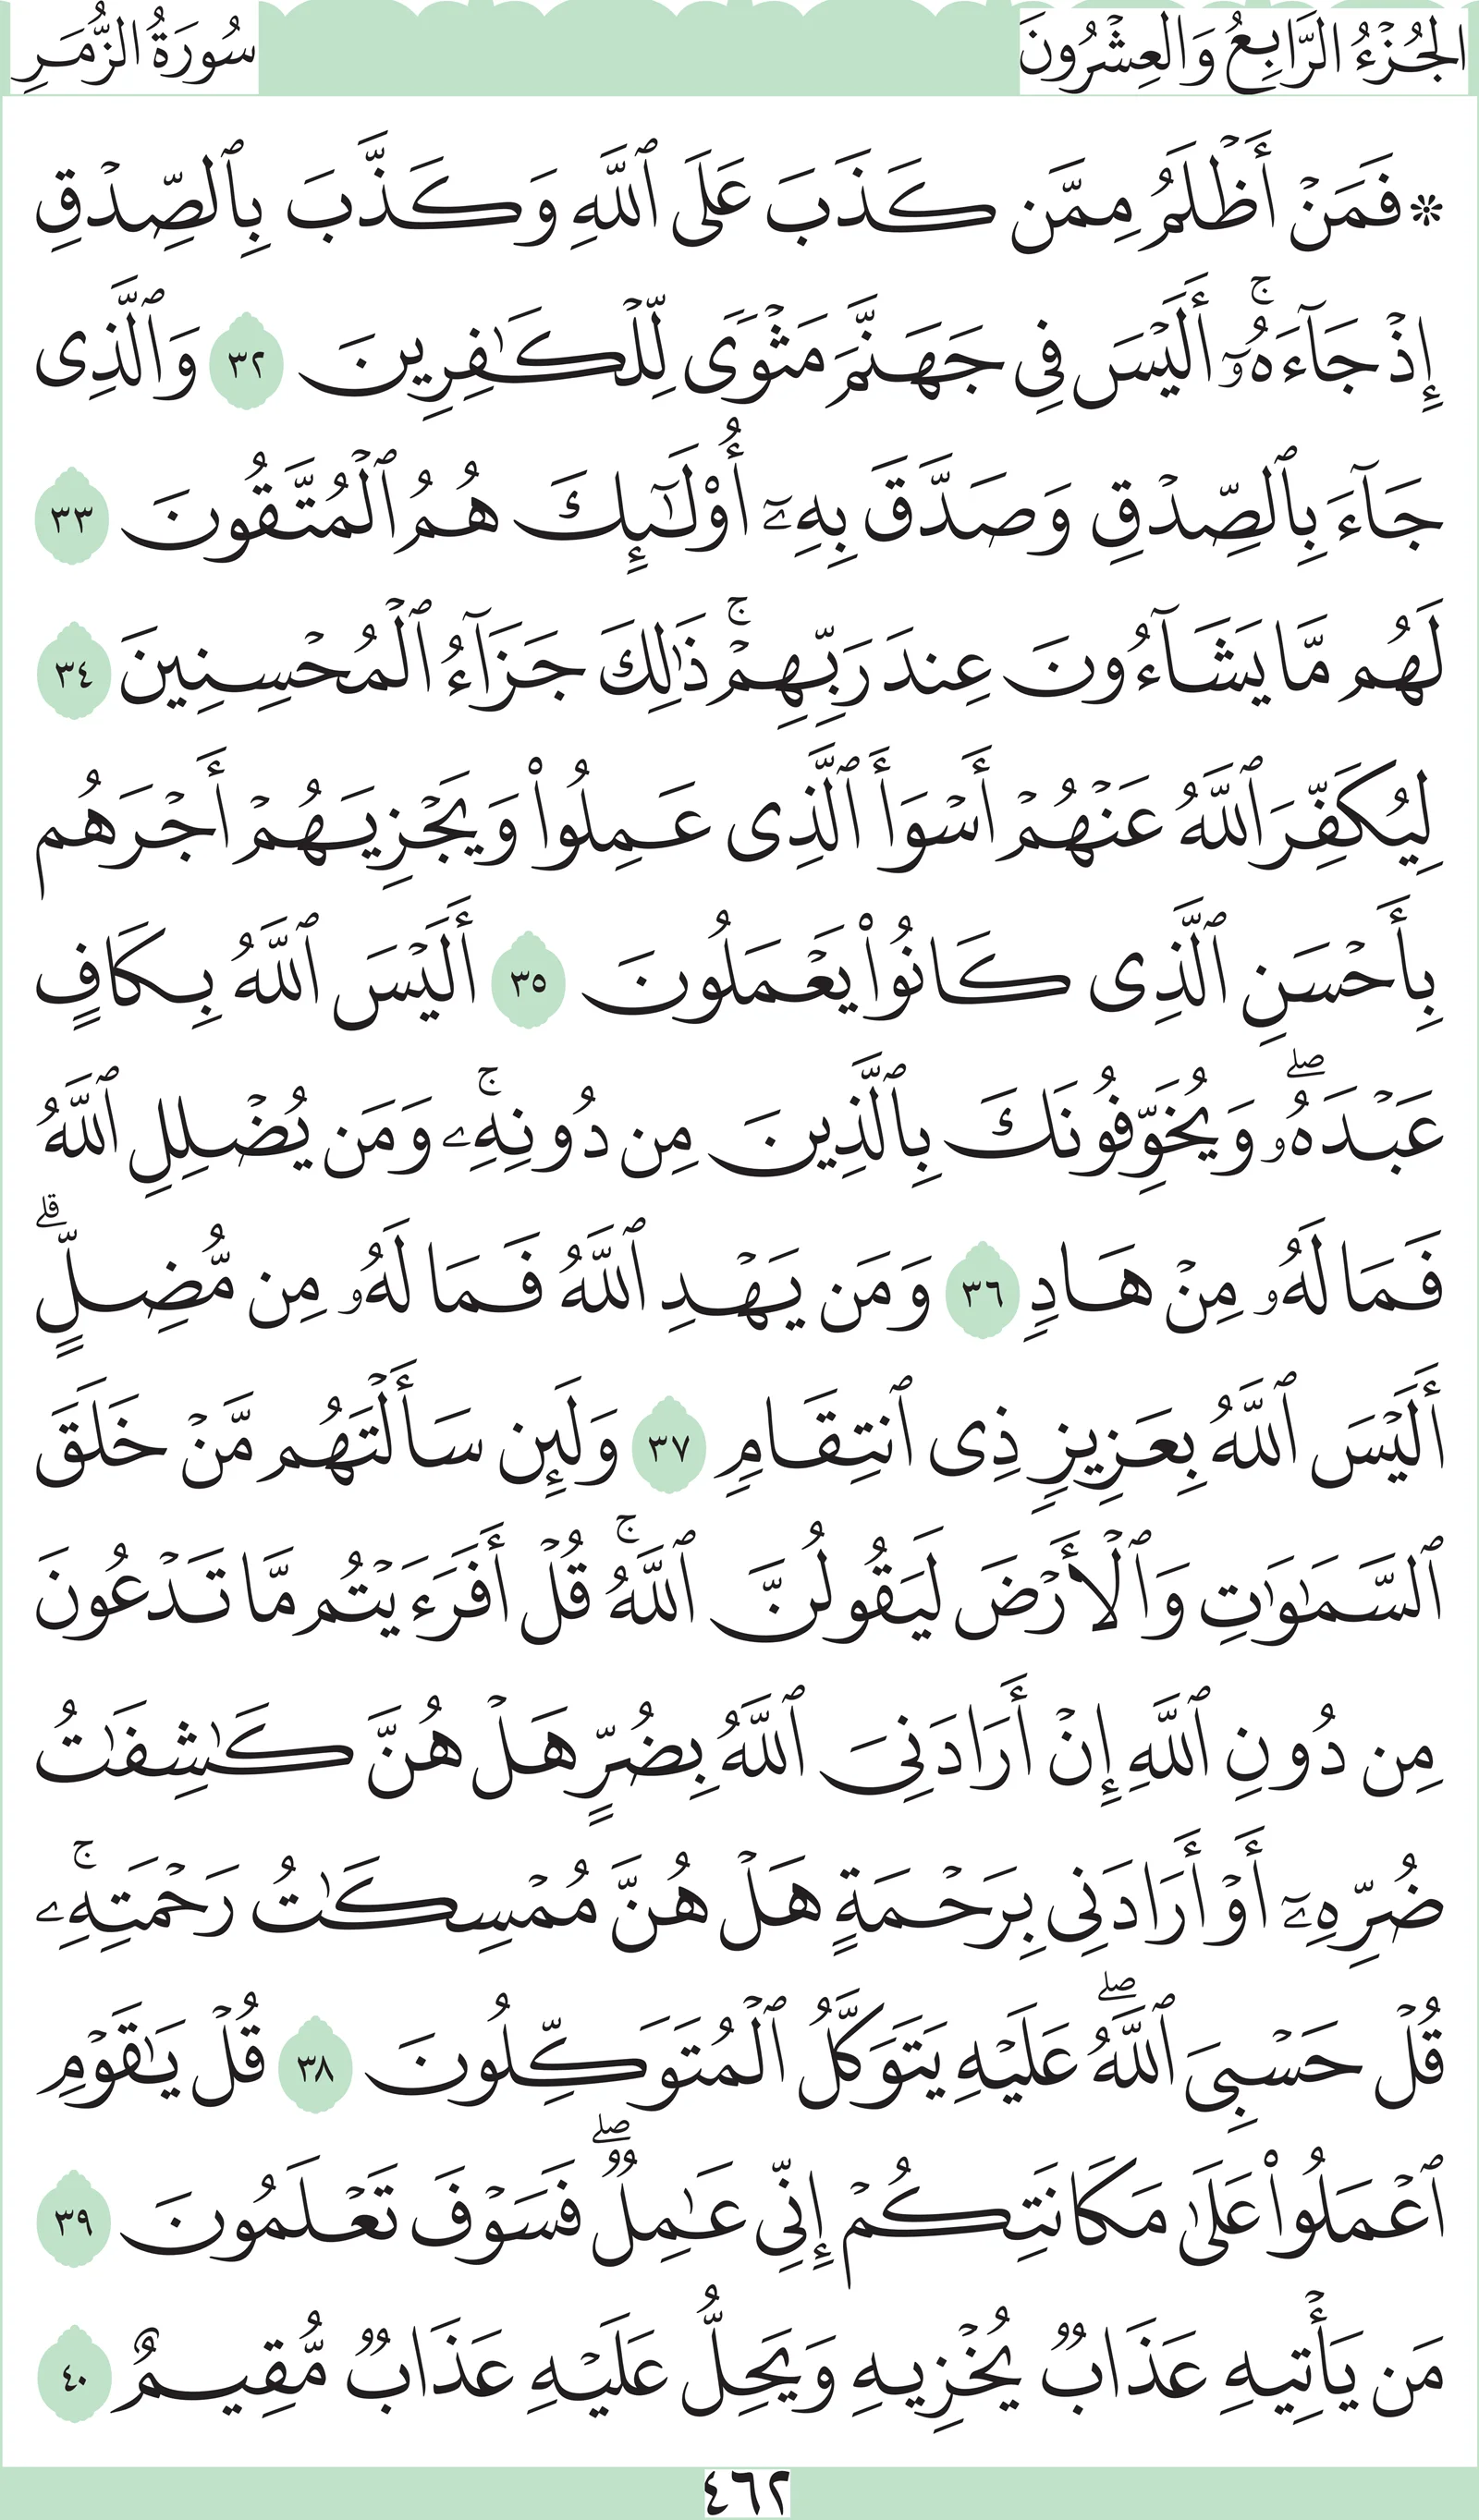 الجُزْءُ الرَّابِعُ وَالعِشْرُونَ
سُورَةُ الزُّمَرِ
۞ فَمَنْ أَظْلَمُ مِمَّن كَذَبَ عَلَى ٱللَّهِ وَكَذَّبَ بِٱلصِّدْقِ
إِذْ جَآءَهُۥٓۚ أَلَيْسَ فِى جَهَنَّمَ مَثْوًى لِّلْكَـٰفِرِينَ ٣٢ وَٱلَّذِى
جَآءَ بِٱلصِّدْقِ وَصَدَّقَ بِهِۦٓ أُو۟لَـٰٓئِكَ هُمُ ٱلْمُتَّقُونَ ٣٣
لَهُم مَّا يَشَآءُونَ عِندَ رَبِّهِمْۚ ذَٰلِكَ جَزَآءُ ٱلْمُحْسِنِينَ ٣٤
لِيُكَفِّرَ ٱللَّهُ عَنْهُمْ أَسْوَأَ ٱلَّذِى عَمِلُوا۟ وَيَجْزِيَهُمْ أَجْرَهُم
بِأَحْسَنِ ٱلَّذِى كَانُوا۟ يَعْمَلُونَ ٣٥ أَلَيْسَ ٱللَّهُ بِكَافٍ
عَبْدَهُۥۖ وَيُخَوِّفُونَكَ بِٱلَّذِينَ مِن دُونِهِۦۚ وَمَن يُضْلِلِ ٱللَّهُ
فَمَا لَهُۥ مِنْ هَادٍ ٣٦ وَمَن يَهْدِ ٱللَّهُ فَمَا لَهُۥ مِن مُّضِلٍّۗ
أَلَيْسَ ٱللَّهُ بِعَزِيزٍ ذِى ٱنتِقَامٍ ٣٧ وَلَئِن سَأَلْتَهُم مَّنْ خَلَقَ
ٱلسَّمَـٰوَٰتِ وَٱلْأَرْضَ لَيَقُولُنَّ ٱللَّهُۚ قُلْ أَفَرَءَيْتُم مَّا تَدْعُونَ
مِن دُونِ ٱللَّهِ إِنْ أَرَادَنِىَ ٱللَّهُ بِضُرٍّ هَلْ هُنَّ كَـٰشِفَـٰتُ
ضُرِّهِۦٓ أَوْ أَرَادَنِى بِرَحْمَةٍ هَلْ هُنَّ مُمْسِكَـٰتُ رَحْمَتِهِۦۚ
قُلْ حَسْبِىَ ٱللَّهُۖ عَلَيْهِ يَتَوَكَّلُ ٱلْمُتَوَكِّلُونَ ٣٨ قُلْ يَـٰقَوْمِ
ٱعْمَلُوا۟ عَلَىٰ مَكَانَتِكُمْ إِنِّى عَـٰمِلٌۖ فَسَوْفَ تَعْلَمُونَ ٣٩
مَن يَأْتِيهِ عَذَابٌ يُخْزِيهِ وَيَحِلُّ عَلَيْهِ عَذَابٌ مُّقِيمٌ ٤٠
٤٦٢